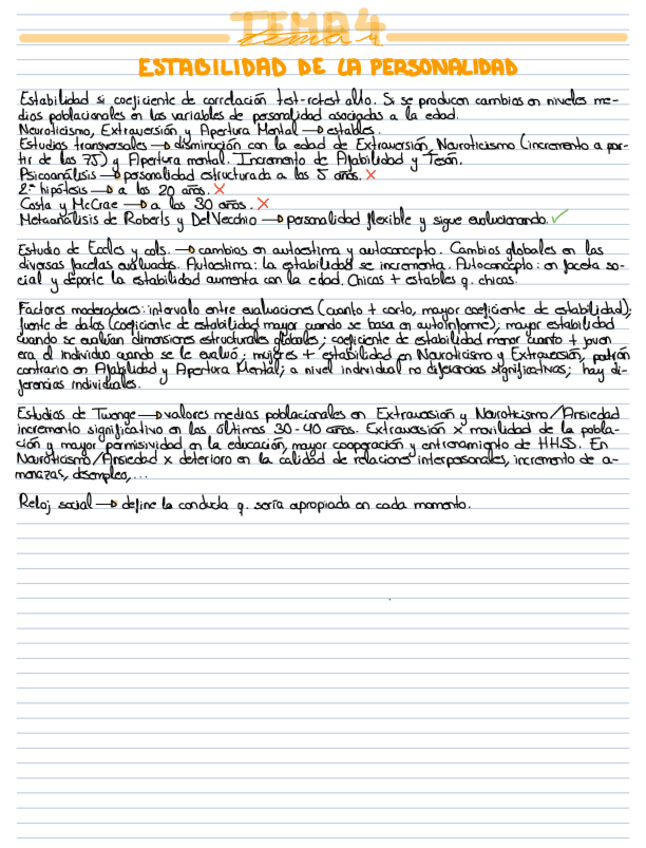 TEMA 4
tema 4
ESTABILIDAD DE LA PERSONALIDAD
Estabilidad si coeficiente de correlación test-retest alto. Si se producen cambios en niveles me-
dios poblacionales en las variables de personalidad asociadas a la edad.
Neuroticismo, Extraversión y Apertura Mental → estables.
Estudios transversales → disminución con la edad de Extraversión, Neuroticismo (incremento a par-
tir de los 75) y Apertura mental. Incremento de Afabilidad y Tesón.
Psicoanálisis → personalidad estructurada a los 5 años. ✗
2ª hipótesis → a los 20 años. ✗
Costa y McCrae → a los 30 años. ✗
Metaanálisis de Roberts y DelVecchio → personalidad flexible y sigue evolucionando. ✓
Estudio de Eccles y cols. → cambios en autoestima y autoconcepto. Cambios globales en las
diversas facetas evaluadas. Autoestima: la estabilidad se incrementa. Autoconcepto: en faceta so-
cial y deporte la estabilidad aumenta con la edad. Chicas + estables q. chicos.
Factores moderadores: intervalo entre evaluaciones (cuanto + corto, mayor coeficiente de estabilidad);
fuente de datos (coeficiente de estabilidad mayor cuando se basa en autoinforme); mayor estabilidad
cuando se evalúan dimensiones estructurales globales; coeficiente de estabilidad menor cuanto + joven
era el individuo cuando se le evaluó; mujeres + estabilidad en Neuroticismo y Extraversión, patrón
contrario en Afabilidad y Apertura Mental; a nivel individual no diferencias significativas; hay di-
ferencias individuales.
Estudios de Twenge → valores medios poblacionales en Extraversión y Neuroticismo/Ansiedad
incremento significativo en los últimos 30-40 años. Extraversión x movilidad de la pobla-
ción y mayor permisividad en la educación, mayor cooperación y entrenamiento de HHSS. En
Neuroticismo/Ansiedad x deterioro en la calidad de relaciones interpersonales, incremento de a-
menazas, desempleo,...
Reloj social → define la conducta q. sería apropiada en cada momento.